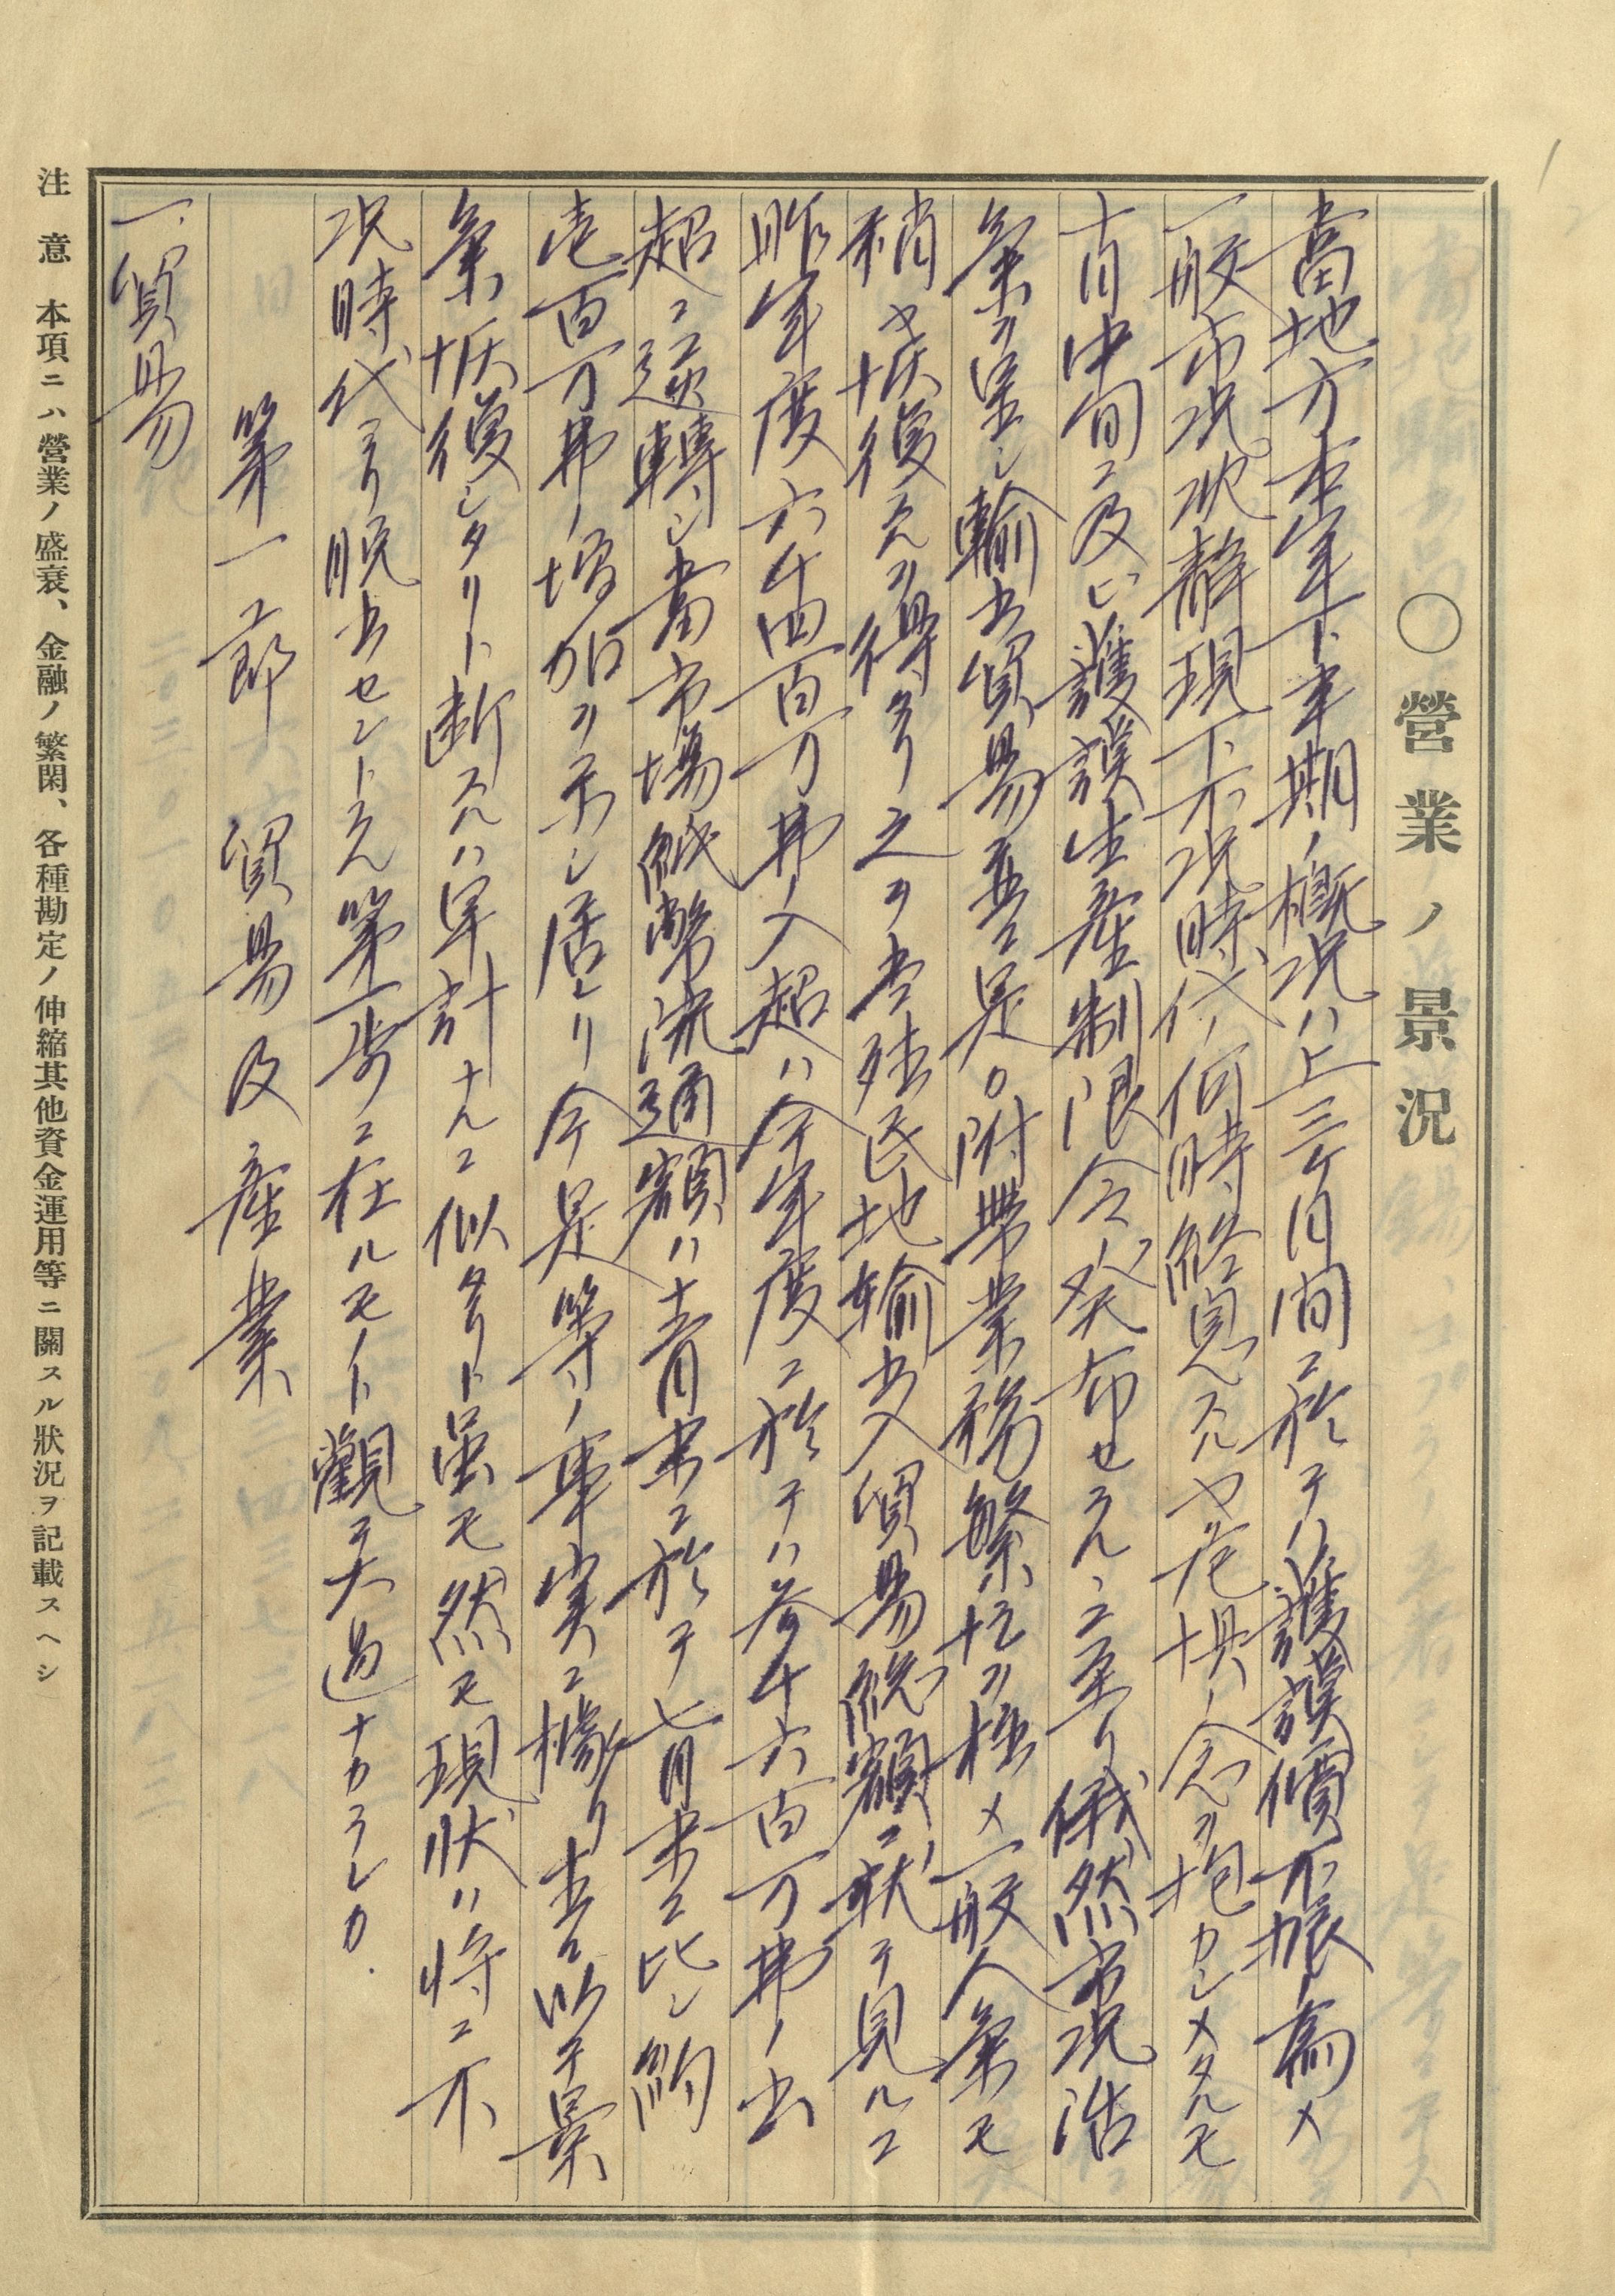 〇營業ノ景況
當地方本年下半期ノ概況ハ上三ケ月間ニ於テハ護謨價不振ノ為メ
一般市況沈靜現下不況時代ノ何時終息スルヤ危惧ノ念ヲ抱カシメタルモ
十月中旬ニ及ビ護謨生産制限令発布セラルヽニ至リ俄然市況活
氣ヲ呈シ輸出貿易並ニ是カ附帯業務繁忙ヲ極メ一般人氣モ
稍々恢復スルヲ得タリ之ヲ当殖民地輸出入貿易総額ニ就テ見ルニ
昨年度六千四百万弗ノ入超ハ今年度ニ於テハ参千六百万弗ノ出
超ニ逆轉シ當市場紙幣流通額ハ十一月末ニ於テ七月末ニ比シ約
壱百万弗ノ増加ヲ示シ居レリ今是等ノ事実ニ據リ直ニ以テ景
氣恢復シタリト断スルハ早計ナルニ似タリト虽モ然モ現状ハ将ニ不
況時代ヨリ脱出セントスル第一歩ニ在ルモノト觀テ大過ナカランカ.
第一節 貿易及産業
一、貿易
注意 本項ニハ營業ノ盛衰、金融ノ繁閑、各種勘定ノ伸縮其他資金運用等ニ關スル狀況ヲ記載スヘシ